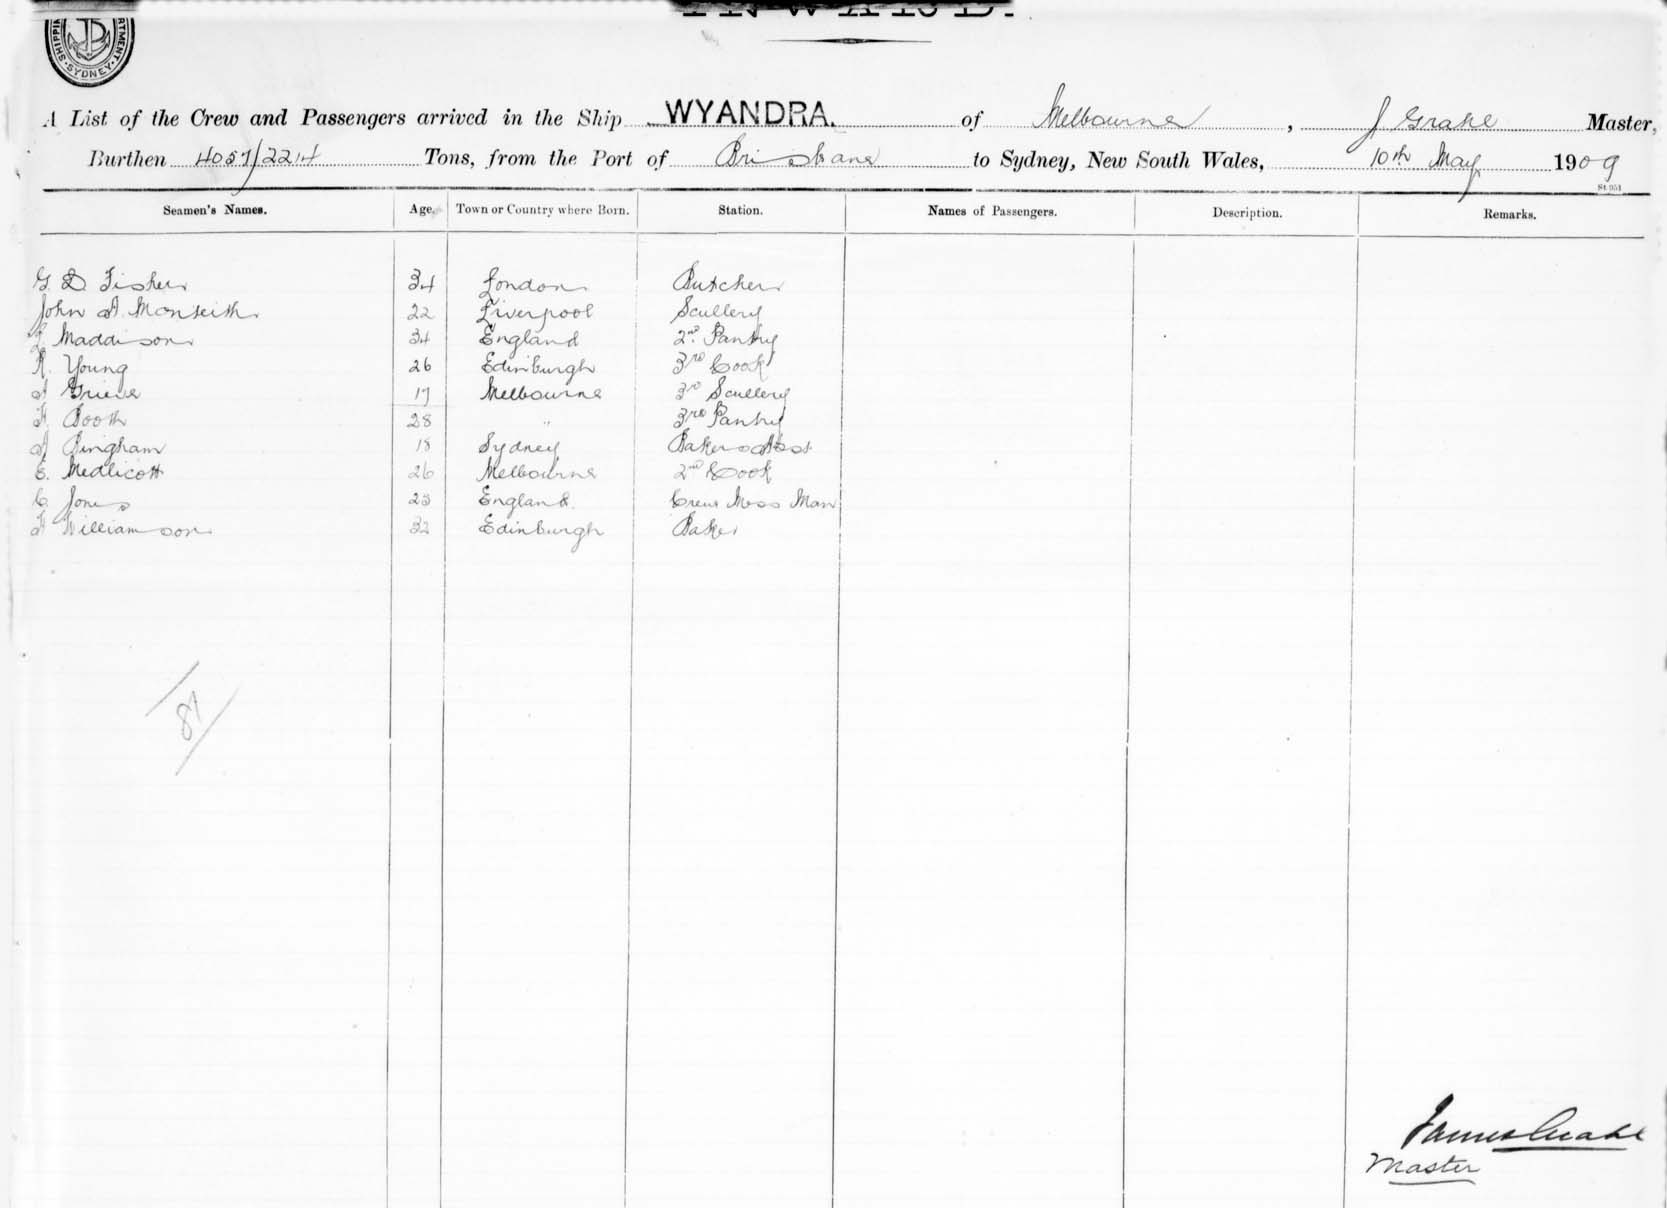 INWARD.
SHIPPING DEPARTMENT SYDNEY
A List of the Crew and Passengers arrived in the Ship WYANDRA. of Melbourne, J Grahl Master,
Burthen 4057/2214 Tons, from the Port of Brisbane to Sydney, New South Wales, 10th May 1909
St 951
Seamen's Names. Age. Town or Country where Born. Station. Names of Passengers. Description. Remarks.
G. D. Fisher 34 London Butcher
John A. Monteith 22 Liverpool Scullery
L. Maddison 34 England 2nd Pantry
R. Young 26 Edinburgh 3rd Cook
A Grieve 17 Melbourne 3rd Scullery
H. Booth 28 " 3rd Pantry
A Bingham 18 Sydney Bakers Asst
E. Medlicott 26 Melbourne 2nd Cook
C. Jones 23 England. Crews Mess Man
H Williamson 32 Edinburgh Baker
87
James Grahl
Master